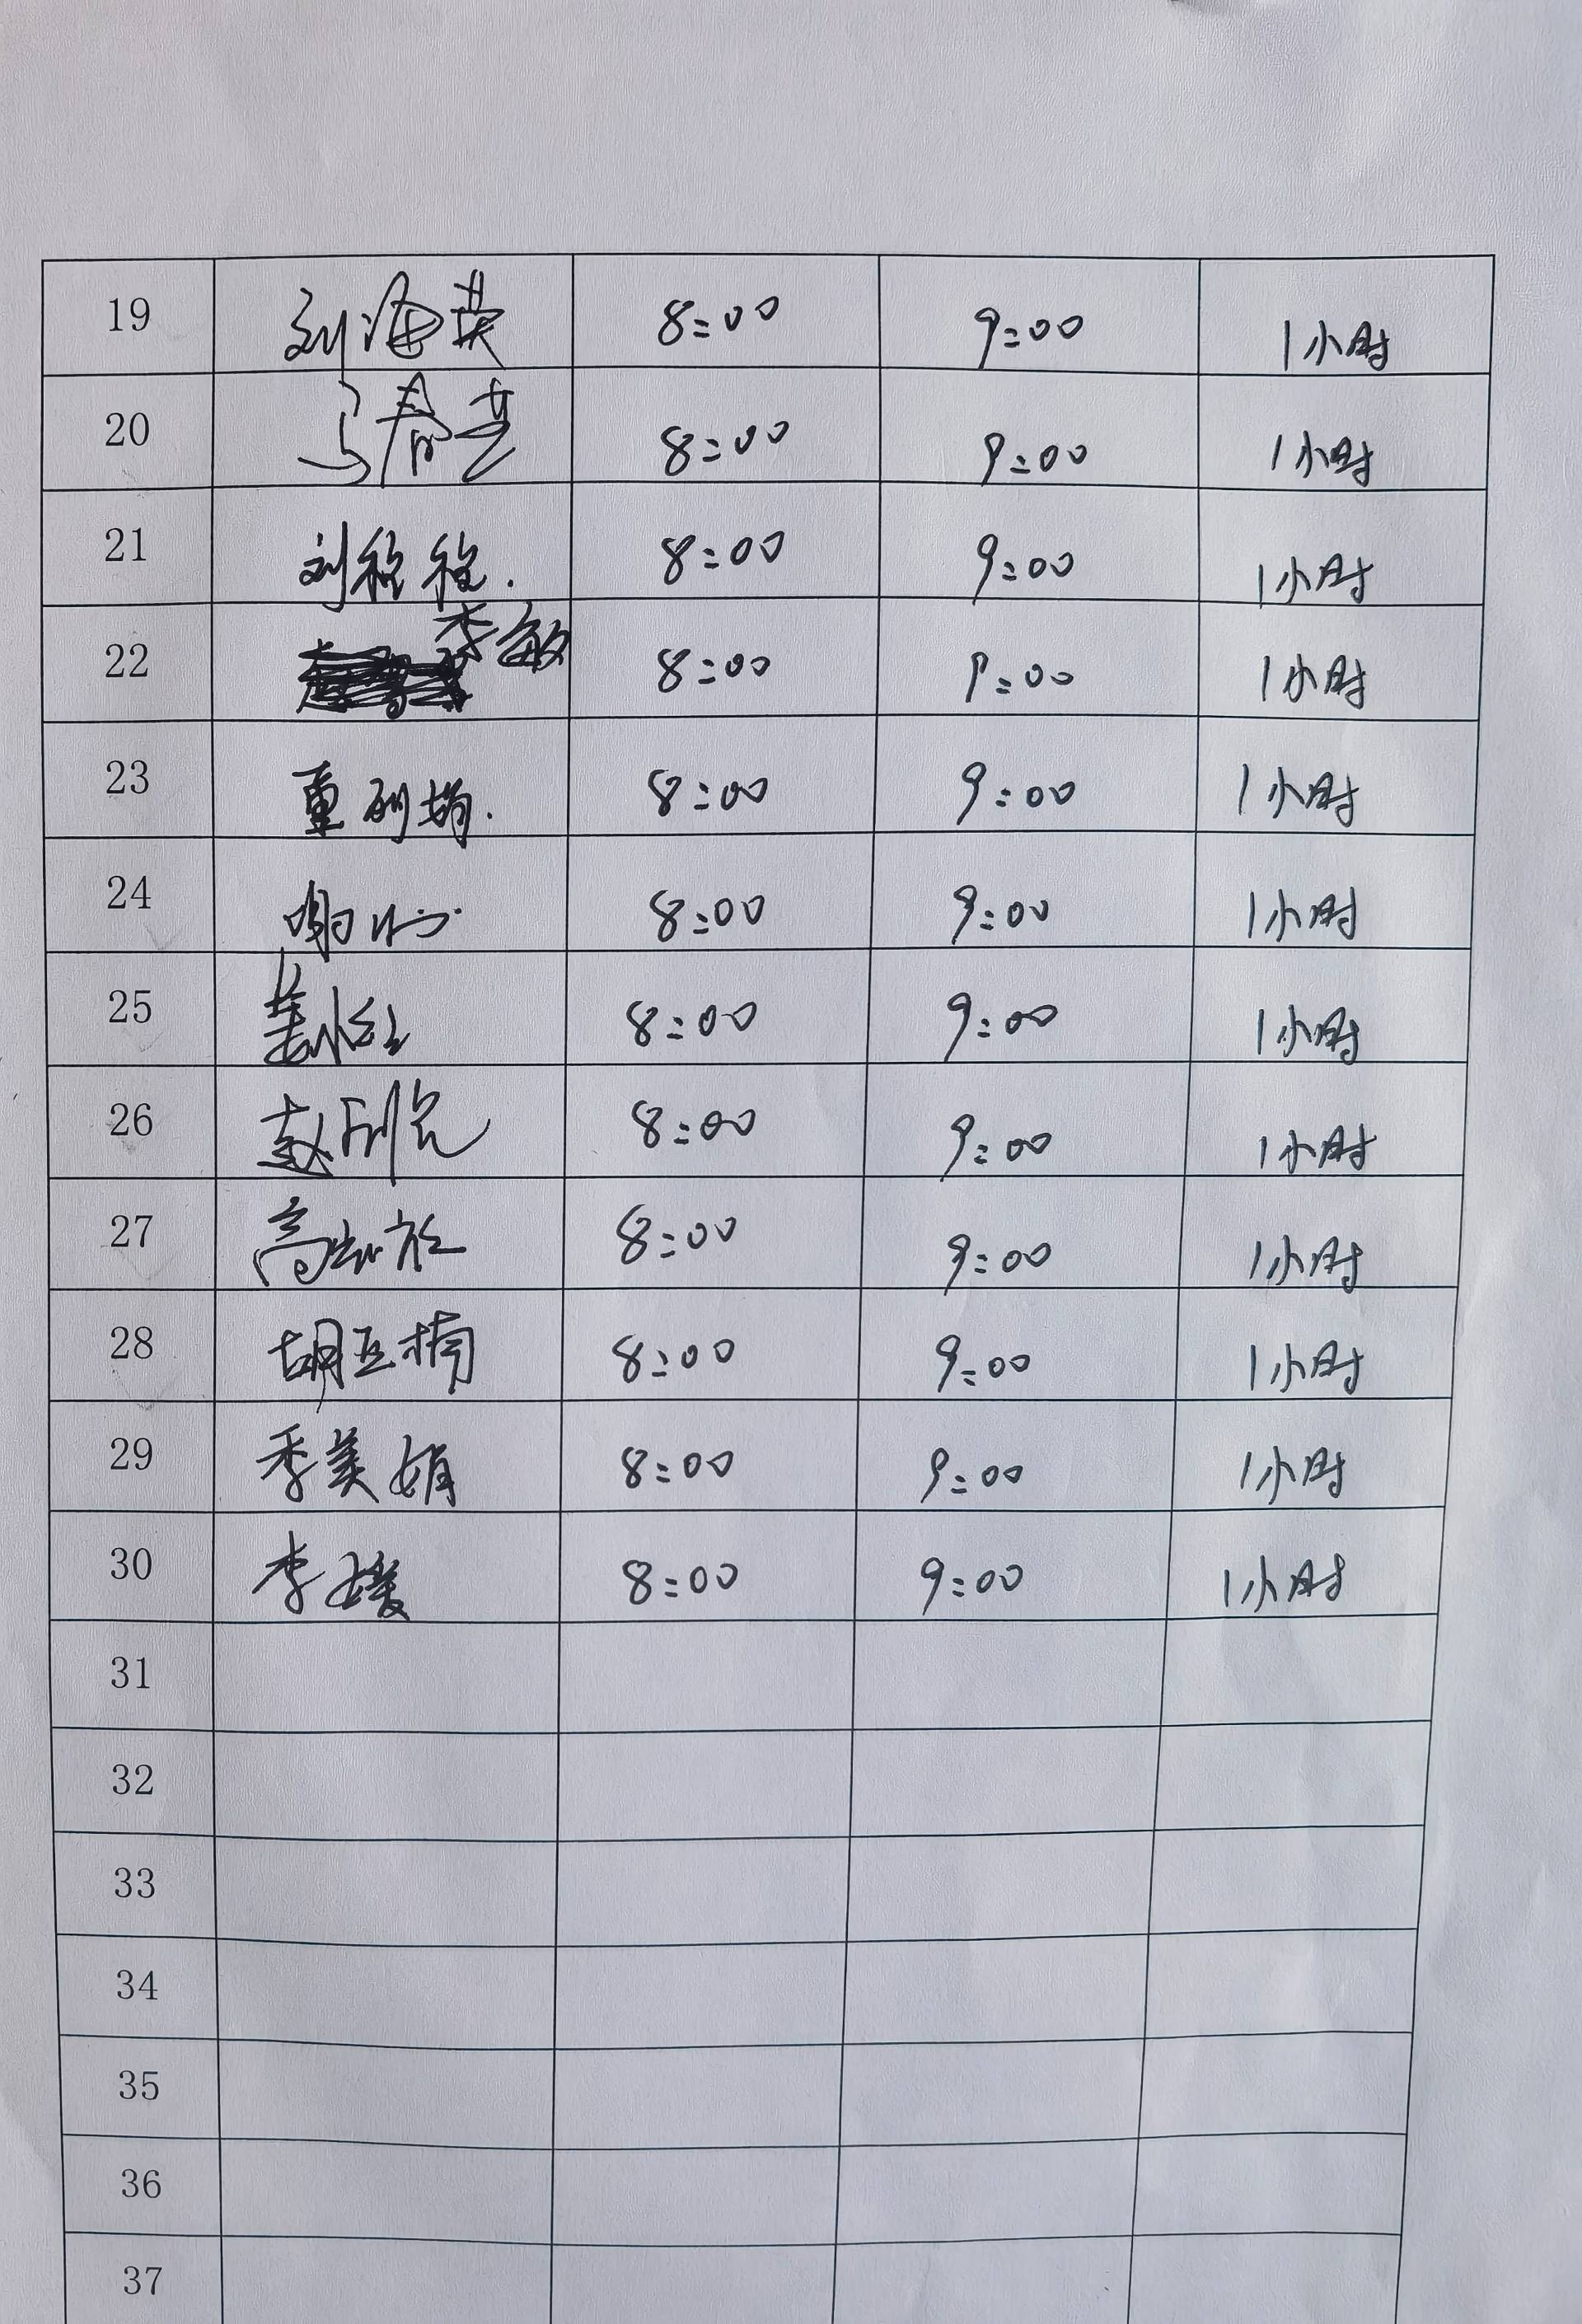 19 刘海英 8:00 9:00 1小时
20 马春芝 8:00 9:00 1小时
21 刘 8:00 9:00 1小时
22 李敏 8:00 9:00 1小时
23 董 8:00 9:00 1小时
24 8:00 9:00 1小时
25 姜 8:00 9:00 1小时
26 赵 8:00 9:00 1小时
27 高 8:00 9:00 1小时
28 胡亚楠 8:00 9:00 1小时
29 季美娟 8:00 9:00 1小时
30 李媛 8:00 9:00 1小时
31
32
33
34
35
36
37